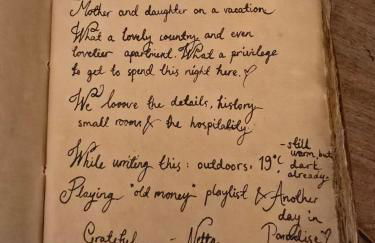 Mother and daughter on a vacation
What a lovely country and even
lovelier apartment. What a privilege
to get to spend this night here. ♡
We looove the details, history
small rooms & the hospitality.
While writing this: outdoors, 19°C
- still
warm but
dark
already.
Playing "old money" playlist & Another
day in
Paradise ♡
Grateful - Netta